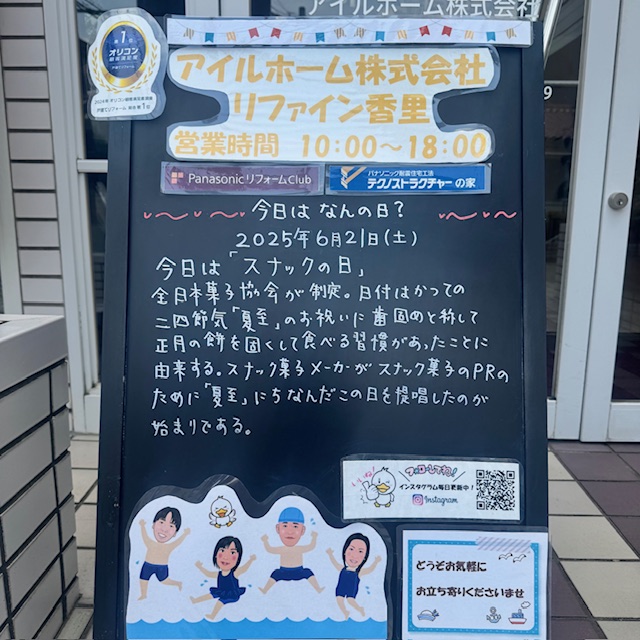 アイルホーム株式会社
第1位
オリコン
顧客満足度
アイルホーム株式会社
リファイン香里
営業時間 10:00～18:00
Panasonic リフォームClub
パナソニック耐震住宅工法
テクノストラクチャーの家
今日は なんの日?
2025年6月21日(土)
今日は「スナックの日」
全日本菓子協会が制定。日付はかつての
二四節気「夏至」のお祝いに歯固めと称して
正月の餅を固くして食べる習慣があったことに
由来する。スナック菓子メーカーがスナック菓子のPRの
ために「夏至」にちなんだこの日を提唱したのが
始まりである。
いいね!
フォローしてね!
インスタグラム毎日更新中!
Instagram
どうぞお気軽に
お立ち寄りくださいませ